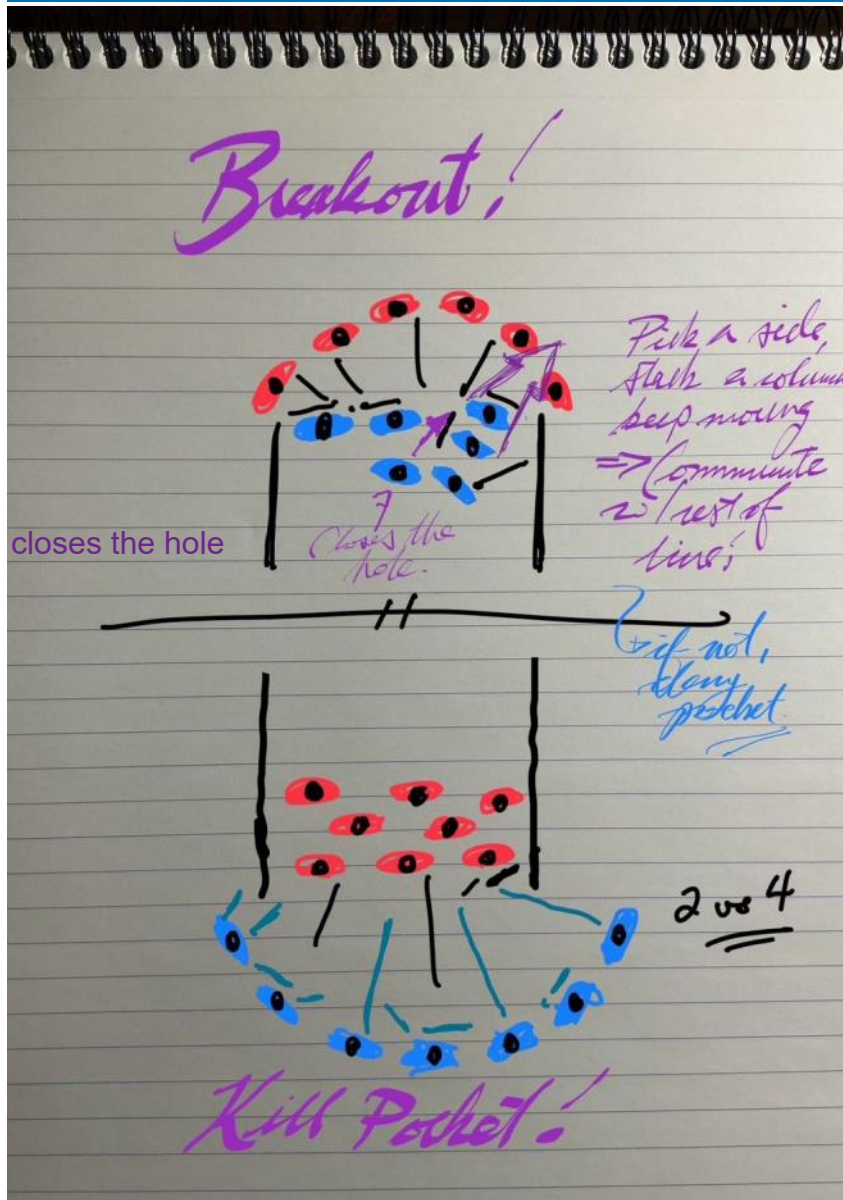 Breakout!
Pick a side,
stack a column
keep moving
=> Communicate
w/ rest of
line!
closes the hole
Closes the
hole.
if not,
deny
pocket.
2 vs 4
Kill Pocket!